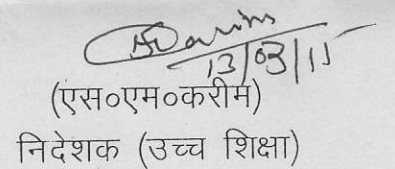 13/03/11
(एस०एम०करीम)
निदेशक (उच्च शिक्षा)